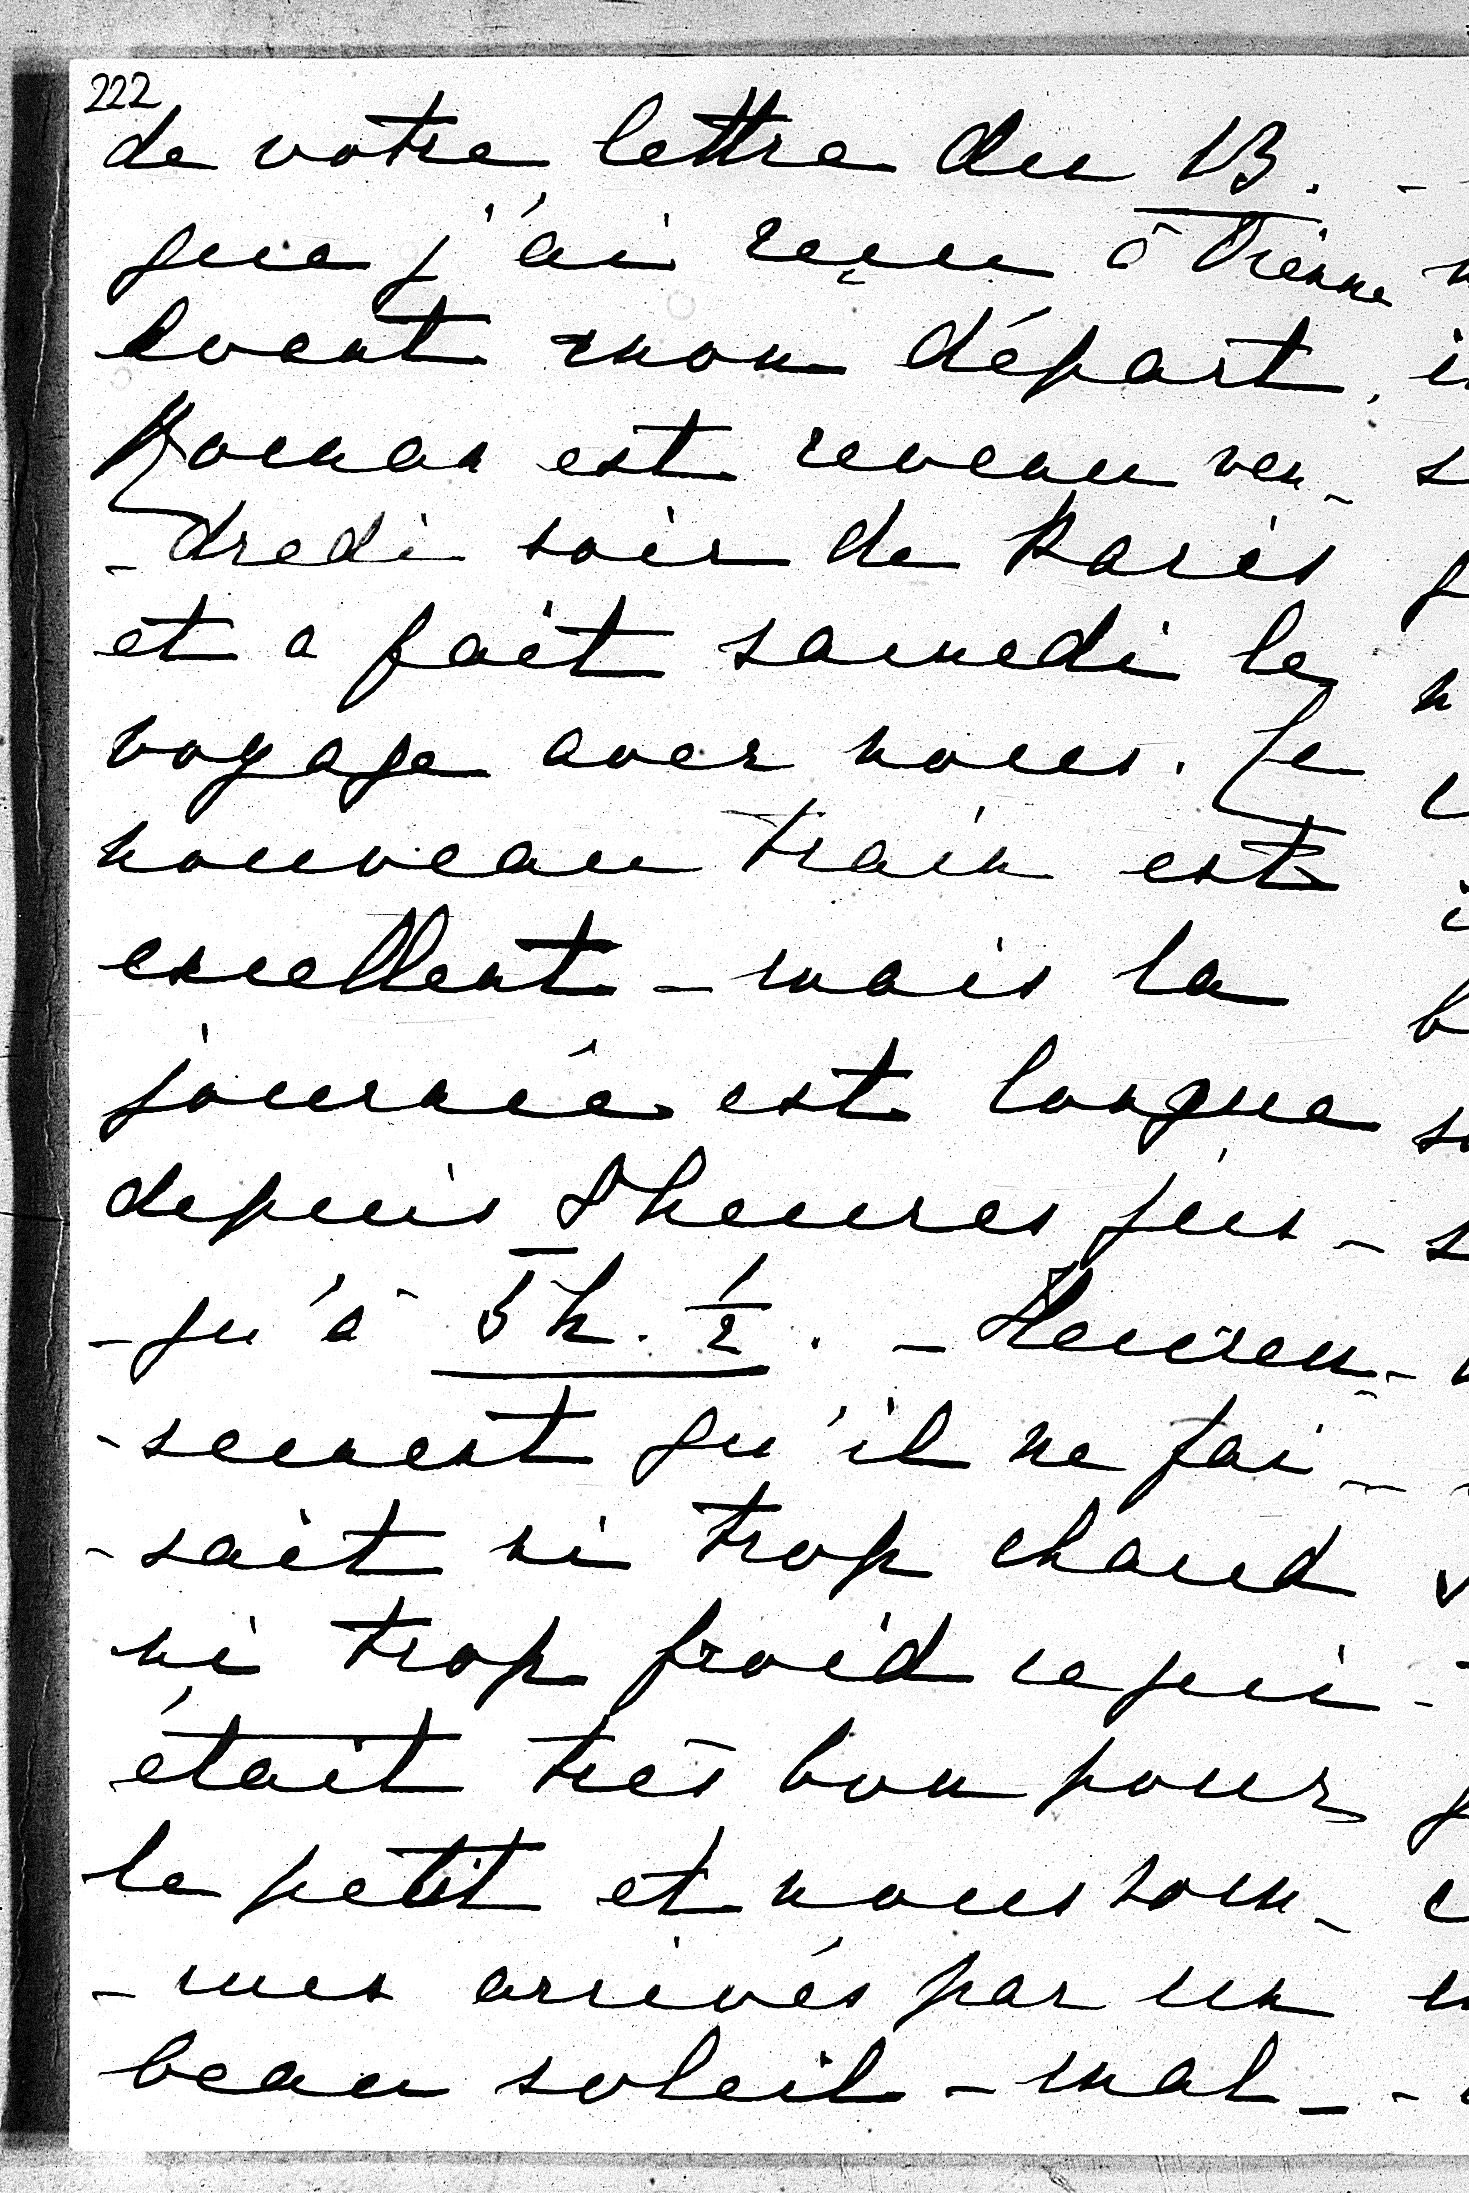 222
de votre lettre du 13. -
que j'ai reçue à Vienne
avant mon départ,
Roman est revenu ven-
-dredi soir de Paris
et a fait samedi le
voyage avec nous. Le
nouveau train est
excellent - mais la
journée est longue
depuis 8 heures jus-
-qu'à 5 h. 1/2. - Heureu-
-sement qu'il ne fai-
-sait ni trop chaud
ni trop froid ce qui
était très bon pour
le petit et nous som-
-mes arrivés par un
beau soleil - mal-